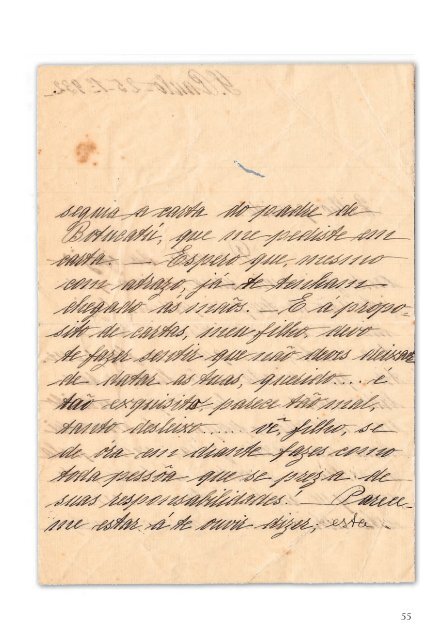 S. Paulo - 25-1º-932.
seguia a carta do padre de
Botucatú, que me pediste em
carta. — Espero que, mesmo
com atrazo, já te tenham
chegado ás mãos. — E á propo-
sito de cartas, meu filho,
te fazer sentir que não deves deixar
de datar as tuas querido.... é
tão exquisito, parece tão mal,
tanto desleixo..... vê, filho, se
de ora em diante fazes como
toda pessôa que se preza de
suas responsabilidades! Parece-
me estar á te ouvir dizer; esta
55